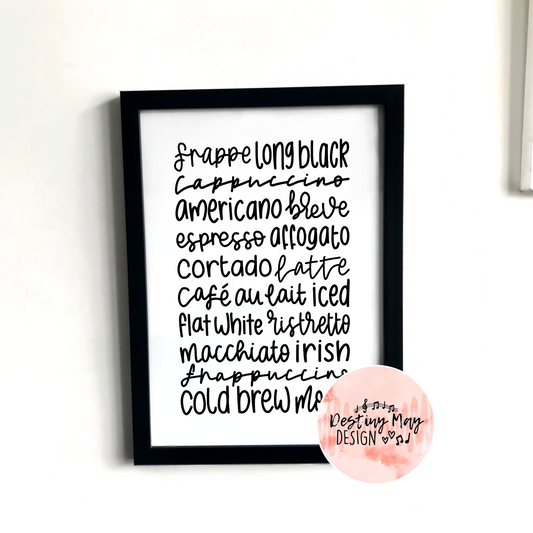 frappe long black
cappuccino
americano breve
espresso affogato
cortado latte
café au lait iced
flat white ristretto
macchiato irish
frappuccino
cold brew
Destiny May
DESIGN